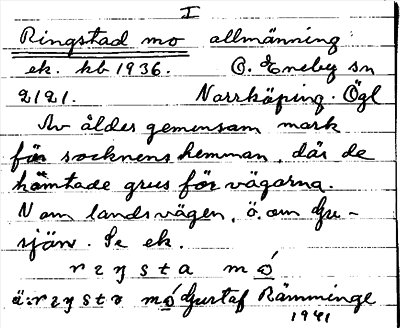 I
Ringstad mo allmänning
ek. kb 1936. Ö. Eneby sn
2121. Norrköping. Ögl
Av ålder gemensam mark
för socknens hemman, där de
hämtade grus för vägarna.
N om landsvägen, ö. om Gu-
sjön. Se ek.
r z y s t a m ó
ä: r z y s t a m ó Gustaf Rämminge
1941